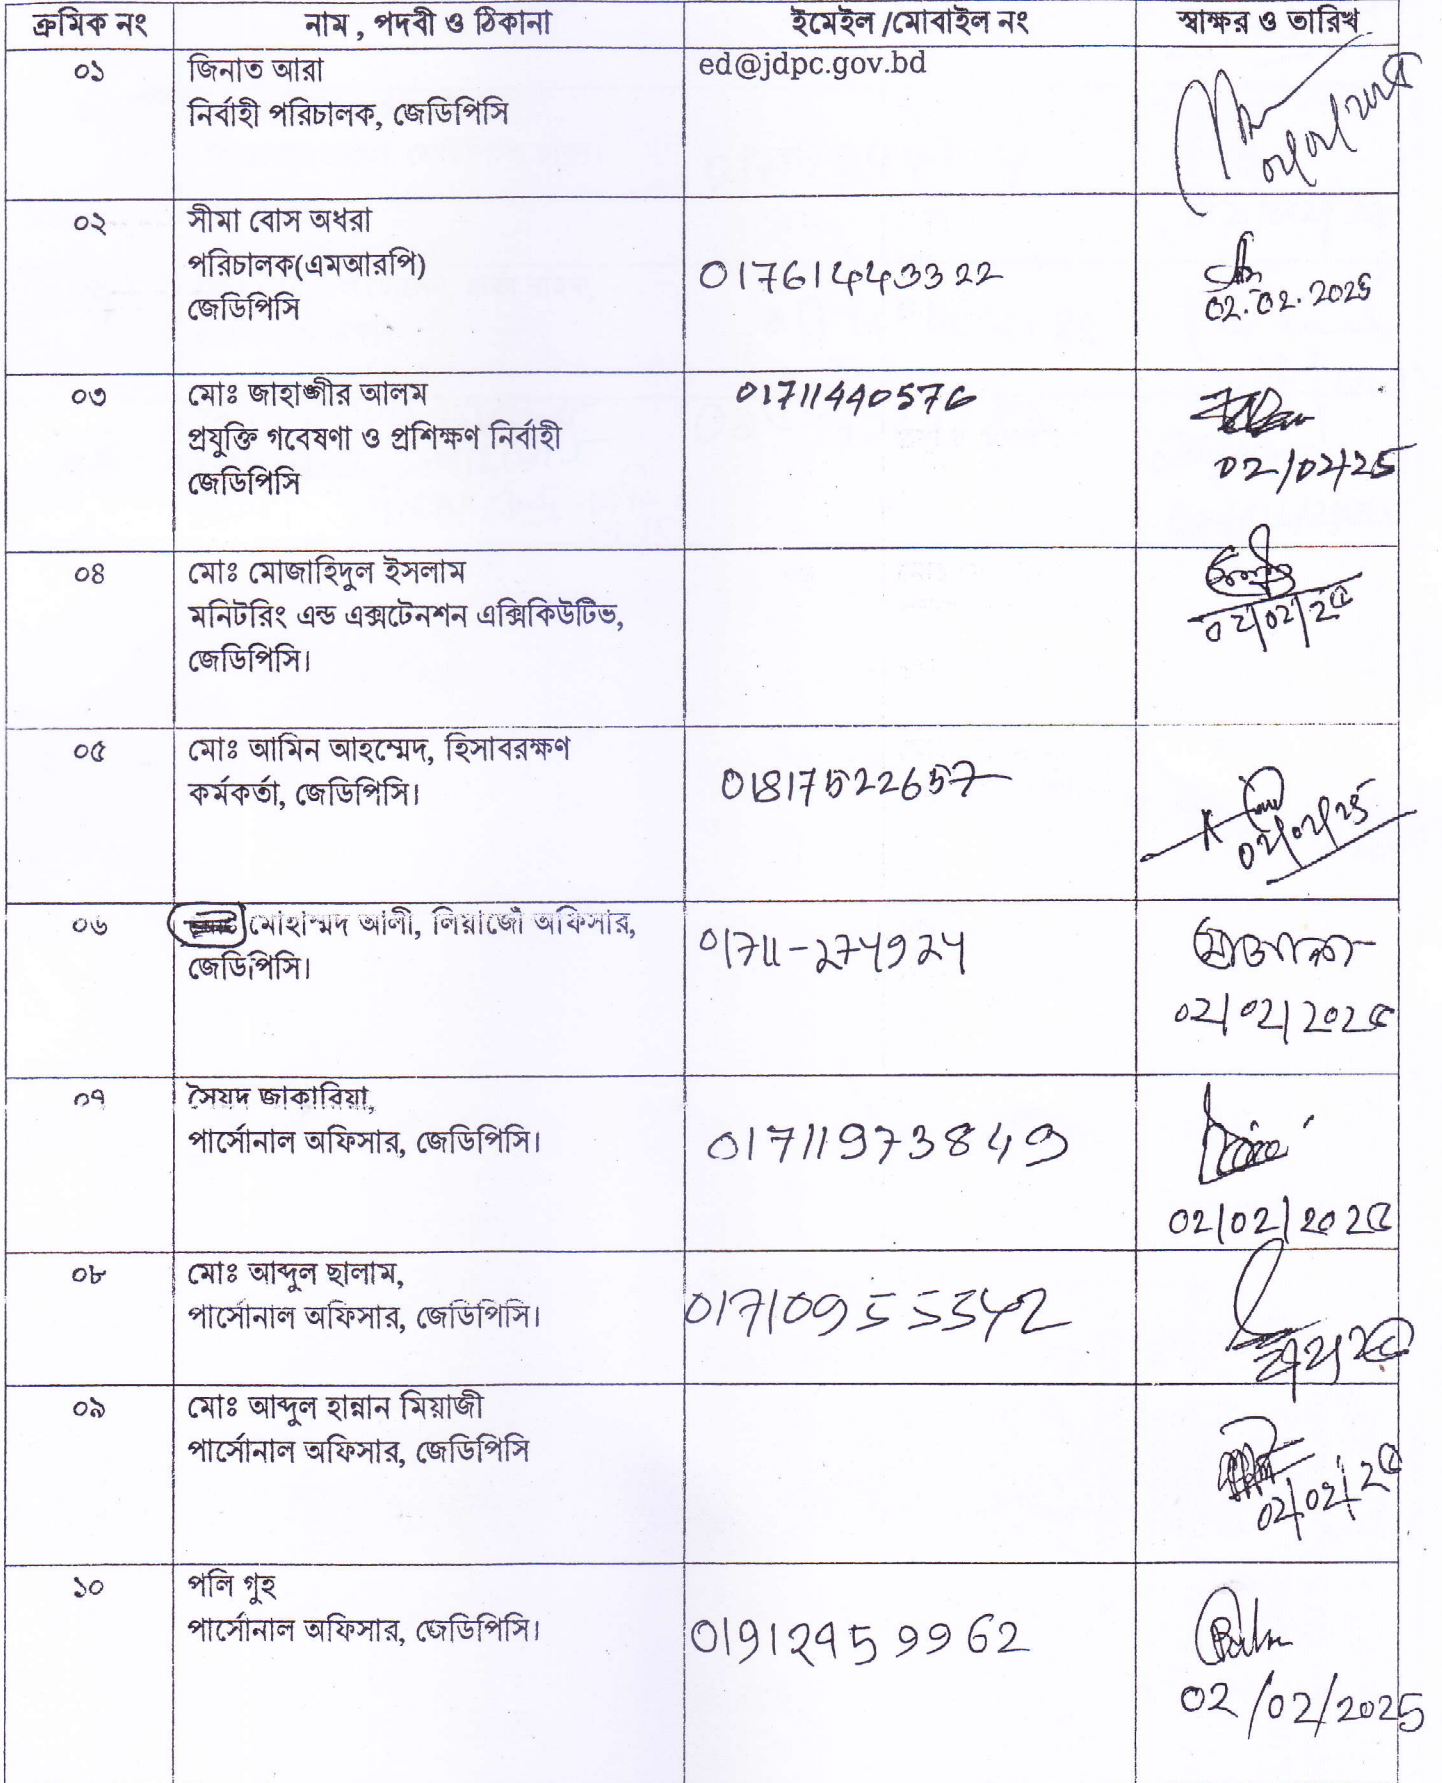 ক্রমিক নং নাম , পদবী ও ঠিকানা ইমেইল /মোবাইল নং স্বাক্ষর ও তারিখ
০১ জিনাত আরা ed@jdpc.gov.bd
নির্বাহী পরিচালক, জেডিপিসি
০২ সীমা বোস অধরা
পরিচালক(এমআরপি) 01761443322
জেডিপিসি 02.02.2025
০৩ মোঃ জাহাঙ্গীর আলম 01711440576
প্রযুক্তি গবেষণা ও প্রশিক্ষণ নির্বাহী
জেডিপিসি 02/02/25
০৪ মোঃ মোজাহিদুল ইসলাম
মনিটরিং এন্ড এক্সটেনশন এক্সিকিউটিভ, 02/02/2৫
জেডিপিসি।
০৫ মোঃ আমিন আহম্মেদ, হিসাবরক্ষণ
কর্মকর্তা, জেডিপিসি। 01817522657 02/02/25
০৬ মোহাম্মদ আলী, লিয়াজোঁ অফিসার, 01711-274924
জেডিপিসি। 02/02/202৫
০৭ সৈয়দ জাকারিয়া,
পার্সোনাল অফিসার, জেডিপিসি। 01711973849
02/02/202৫
০৮ মোঃ আব্দুল ছালাম,
পার্সোনাল অফিসার, জেডিপিসি। 01710955342
০৯ মোঃ আব্দুল হান্নান মিয়াজী
পার্সোনাল অফিসার, জেডিপিসি
02/02/2৫
১০ পলি গুহ
পার্সোনাল অফিসার, জেডিপিসি। 01912959962
02/02/2025